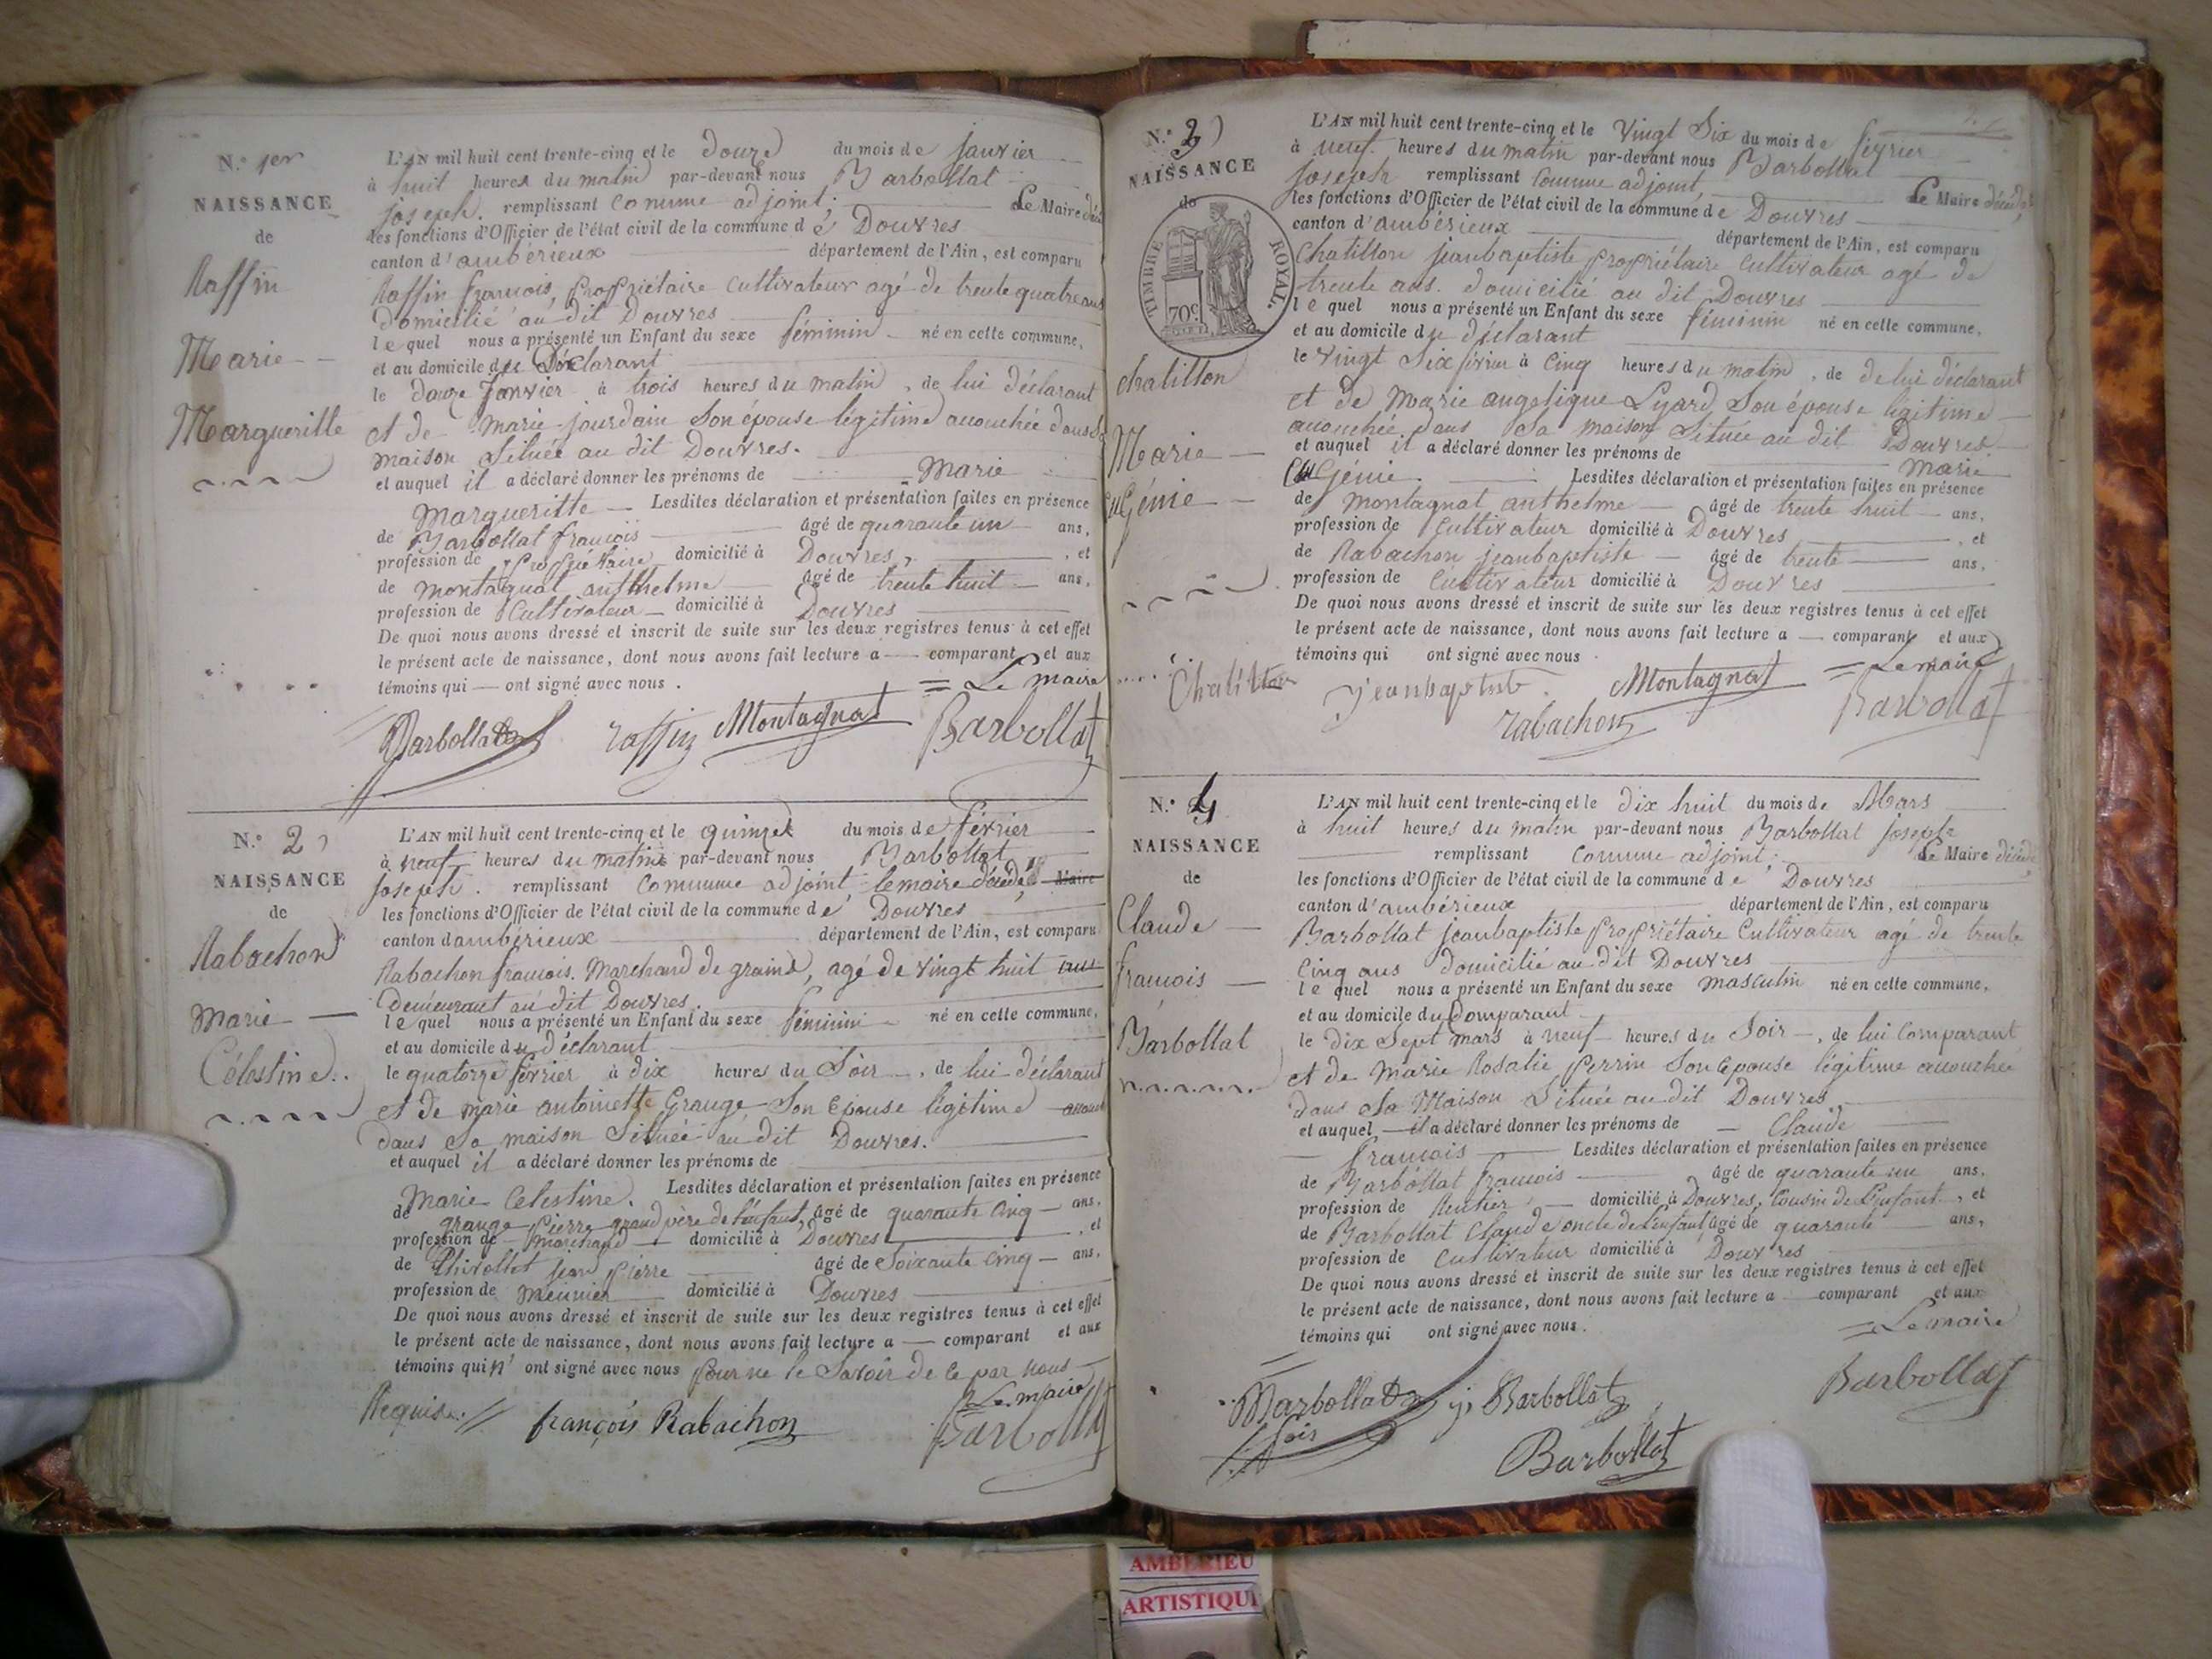 N.° 1er
NAISSANCE
de
Raffin
Marie
Margueritte
L'AN mil huit cent trente-cinq et le douze du mois de janvier
à huit heures du matin par-devant nous Barbollat
joseph. remplissant comme adjoint, Le Maire
les fonctions d'Officier de l'état civil de la commune de Douvres
canton d'ambérieux département de l'Ain, est comparu
Raffin francois, propriétaire cultivateur agé de trente quatre ans
domicilié au dit Douvres
lequel nous a présenté un Enfant du sexe féminin né en cette commune,
et au domicile du Déclarant
le douze Janvier à trois heures du matin, de lui déclarant
et de Marie jourdain Son épouse légitime accouchée dans sa
maison Située au dit Douvres.
et auquel il a déclaré donner les prénoms de Marie
Margueritte Lesdites déclaration et présentation faites en présence
de Barbollat francois âgé de quarante un ans,
profession de propriétaire domicilié à Douvres, et
de montagnat anthelme âgé de trente huit ans,
profession de Cultivateur domicilié à Douvres
De quoi nous avons dressé et inscrit de suite sur les deux registres tenus à cet effet
le présent acte de naissance, dont nous avons fait lecture a comparant et aux
témoins qui ont signé avec nous.
Le maire
Barbollat raffin Montagnat Barbollat
N.° 2
NAISSANCE
de
Rabachon
Marie
Célestine.
L'AN mil huit cent trente-cinq et le quinze du mois de février
à neuf heures du matin par-devant nous Barbollat
Joseph. remplissant comme adjoint lemaire décédé, Maire
les fonctions d'Officier de l'état civil de la commune de Douvres
canton d'ambérieux département de l'Ain, est comparu
Rabachon francois. Marchand de grains, agé de vingt huit ans
demeurant au dit Douvres.
lequel nous a présenté un Enfant du sexe féminin né en cette commune,
et au domicile du déclarant
le quatorze février à dix heures du Soir, de lui déclarant
et de marie antoinette Grange Son Epouse légitime
dans Sa maison Située au dit Douvres.
et auquel il a déclaré donner les prénoms de
Marie Celestine. Lesdites déclaration et présentation faites en présence
de grange Pierre grand père de l'enfant, âgé de quarante cinq ans,
profession de marchand domicilié à Douvres, et
de Thivollet jean pierre âgé de Soixante cinq ans,
profession de meunier domicilié à Douvres
De quoi nous avons dressé et inscrit de suite sur les deux registres tenus à cet effet
le présent acte de naissance, dont nous avons fait lecture a comparant et aux
témoins qui n' ont signé avec nous pour ne le Savoir de ce par nous
Requis. Le maire
françois Rabachon Barbollat
N.° 3
NAISSANCE
de
TIMBRE ROYAL.
70c
chatillon
Marie
Eugénie
L'AN mil huit cent trente-cinq et le Vingt Six du mois de février
à neuf heures du matin par-devant nous Barbollat
joseph remplissant comme adjoint, Le Maire décédé
les fonctions d'Officier de l'état civil de la commune de Douvres
canton d'ambérieux département de l'Ain, est comparu
Chatillon jeanbaptiste propriétaire cultivateur agé de
trente ans. domicilié au dit Douvres
lequel nous a présenté un Enfant du sexe féminin né en cette commune,
et au domicile du déclarant
le vingt Six février à Cinq heures du matin, de de lui déclarant
et de Marie angelique Lyard Son épouse légitime
accouchée dans Sa maison Située au dit Douvres.
et auquel il a déclaré donner les prénoms de Marie
Eugénie. Lesdites déclaration et présentation faites en présence
de montagnat anthelme âgé de trente huit ans,
profession de Cultivateur domicilié à Douvres, et
de Rabachon jeanbaptiste âgé de trente ans,
profession de Cultivateur domicilié à Douvres
De quoi nous avons dressé et inscrit de suite sur les deux registres tenus à cet effet
le présent acte de naissance, dont nous avons fait lecture a comparant et aux
témoins qui ont signé avec nous.
Le maire
Chatillon jeanbaptiste. Montagnat Barbollat
rabachon
N.° 4
NAISSANCE
de
Claude
francois
Barbollat
L'AN mil huit cent trente-cinq et le dix huit du mois de Mars
à huit heures du matin par-devant nous Barbollat joseph
remplissant comme adjoint. Le Maire décédé
les fonctions d'Officier de l'état civil de la commune de Douvres
canton d'ambérieux département de l'Ain, est comparu
Barbollat jeanbaptiste propriétaire Cultivateur agé de trente
Cinq ans domicilié au dit Douvres
lequel nous a présenté un Enfant du sexe masculin né en cette commune,
et au domicile du Comparant
le dix Sept mars à neuf heures du Soir, de lui comparant
et de Marie Rosalie perrin Son Epouse légitime accouchée
dans Sa Maison Située au dit Douvres
et auquel il a déclaré donner les prénoms de Claude
francois Lesdites déclaration et présentation faites en présence
de Barbollat francois âgé de quarante un ans,
profession de Rentier domicilié à Douvres, Cousin de l'enfant, et
de Barbollat Claude oncle de l'enfant âgé de quarante ans,
profession de cultivateur domicilié à Douvres
De quoi nous avons dressé et inscrit de suite sur les deux registres tenus à cet effet
le présent acte de naissance, dont nous avons fait lecture a comparant et aux
témoins qui ont signé avec nous.
Le maire
Barbollat fois j Barbollat Barbollat
Barbollat
AMBERIEU
ARTISTIQUE